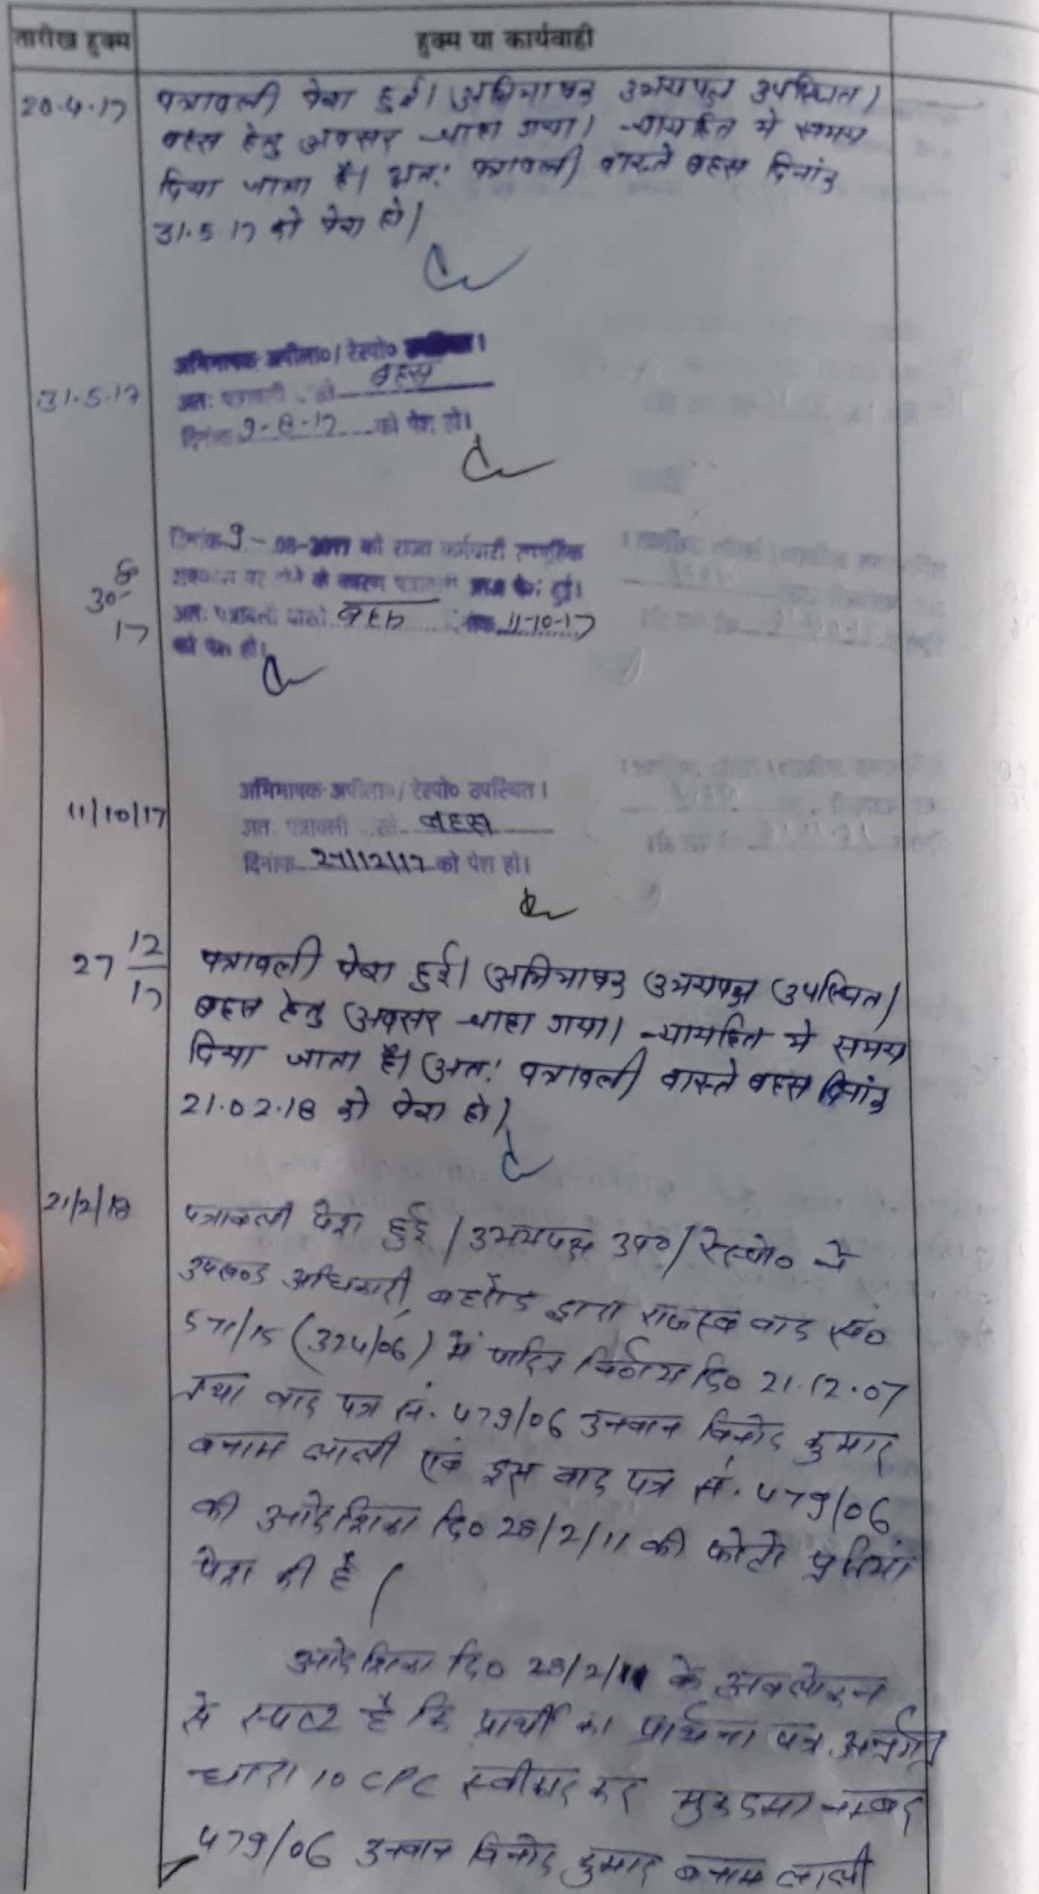 तारीख हुक्म
हुक्म या कार्यवाही
20.4.17
पत्रावली पेश हुई। अभिभाषक उभयपक्ष उपस्थित।
बहस हेतु अवसर चाहा गया। न्यायहित मे समय
दिया जाता है। अतः पत्रावली वास्ते बहस दिनांक
31.5.17 को पेश हो।
31.5.17
अभिभाषक अपीला०/रेस्पो० उपस्थित।
अतः पत्रावली वास्ते बहस
दिनांक 9-8-17 को पेश हो।
30-8-17
दिनांक 9-08-2017 को राज्य कर्मचारी सामूहिक
अवकाश पर होने के कारण पत्रावली आज पेश हुई।
अतः पत्रावली वास्ते बहस दिनांक 11-10-17
को पेश हो।
11/10/17
अभिभाषक अपीला०/रेस्पो० उपस्थित।
अतः पत्रावली वास्ते बहस
दिनांक 27/12/17 को पेश हो।
27 12/17
पत्रावली पेश हुई। अभिभाषक उभयपक्ष उपस्थित।
बहस हेतु अवसर चाहा गया। न्यायहित मे समय
दिया जाता है। अतः पत्रावली वास्ते बहस दिनांक
21.02.18 को पेश हो।
21/2/18
पत्रावली पेश हुई। उभयपक्ष उप०। रेस्पो० ने
उपखण्ड अधिकारी, बहरोड द्वारा राजस्व वाद सं०
571/15 (324/06) में पारित निर्णय दि० 21.12.07
तथा वाद पत्र सं. 479/06 उनवान विनोद कुमार
बनाम लाली एवं इस वाद पत्र सं. 479/06
की आदेशिका दि० 28/2/11 की फोटो प्रतियां
पेश की है।
आदेशिका दि० 28/2/11 के अवलोकन
से स्पष्ट है कि प्रार्थी का प्रार्थना पत्र अन्तर्गत
धारा 10 CPC स्वीकार कर मुकदमा नम्बर
479/06 उनवान विनोद कुमार बनाम लाली